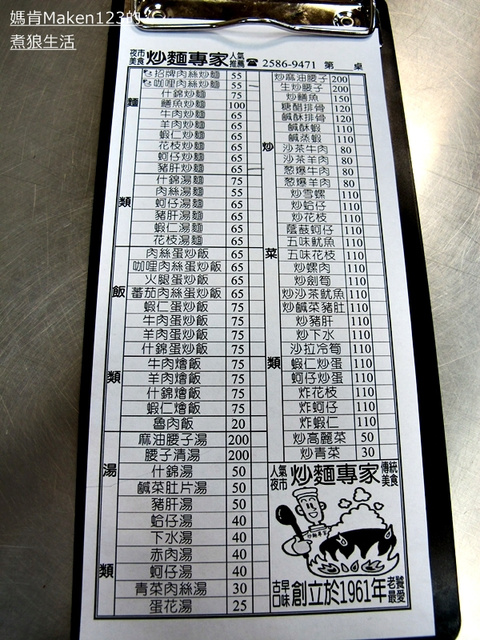 媽肯Maken123的
煮狼生活
夜市美食 炒麵專家 人氣推薦 ☎2586-9471 第 桌
麵類
招牌肉絲炒麵 55
咖哩肉絲炒麵 55
什錦炒麵 75
鱔魚炒麵 100
牛肉炒麵 65
羊肉炒麵 65
蝦仁炒麵 65
花枝炒麵 65
蚵仔炒麵 65
豬肝炒麵 65
什錦湯麵 75
肉絲湯麵 55
蚵仔湯麵 65
豬肝湯麵 65
蝦仁湯麵 65
花枝湯麵 65
飯類
肉絲蛋炒飯 65
咖哩肉絲蛋炒飯 65
火腿蛋炒飯 65
蕃茄肉絲蛋炒飯 65
蝦仁蛋炒飯 75
牛肉蛋炒飯 75
羊肉蛋炒飯 75
什錦蛋炒飯 75
牛肉燴飯 75
羊肉燴飯 75
什錦燴飯 75
蝦仁燴飯 75
魯肉飯 20
湯類
麻油腰子湯 200
腰子清湯 200
什錦湯 50
鹹菜肚片湯 50
豬肝湯 50
蛤仔湯 40
下水湯 40
赤肉湯 40
蚵仔湯 40
青菜肉絲湯 30
蛋花湯 25
炒菜類
炒麻油腰子 200
生炒腰子 200
炒鱔魚 150
糖醋排骨 120
鹹酥排骨 120
鹹酥蝦 110
鹹蒸蝦 110
沙茶牛肉 80
沙茶羊肉 80
葱爆牛肉 80
葱爆羊肉 80
炒雪螺 110
炒蛤仔 110
炒花枝 110
蔭豉蚵仔 110
五味魷魚 110
五味花枝 110
炒螺肉 110
炒劍筍 110
炒沙茶魷魚 110
炒鹹菜豬肚 110
炒豬肝 110
炒下水 110
沙拉冷筍 110
蝦仁炒蛋 110
蚵仔炒蛋 110
炸花枝 110
炸蚵仔 110
炸蝦仁 110
炒高麗菜 50
炒青菜 30
人氣夜市 炒麵專家 傳統美食
古早口味 創立於1961年 老饕最愛